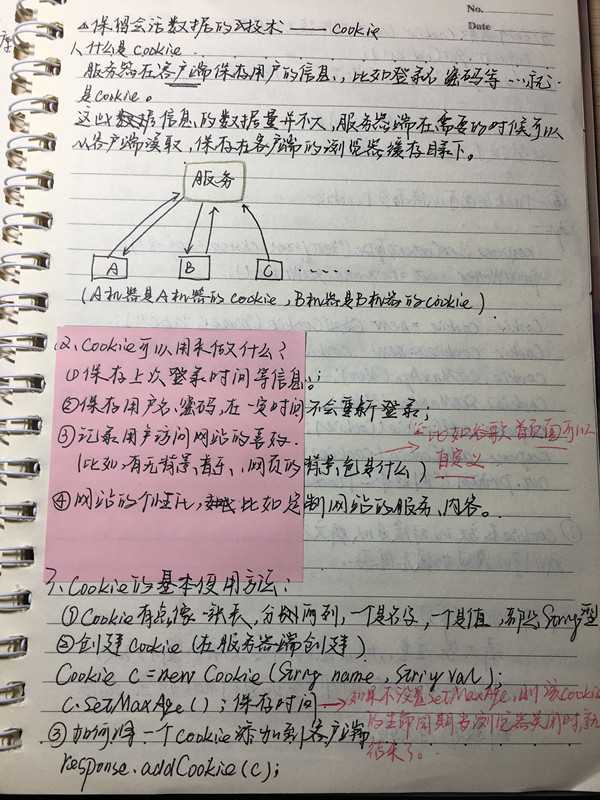 No.
Date
△保留会话数据的技术 —— Cookie
1、什么是Cookie
服务器在客户端保存用户的信息,比如登录名、密码等……就
是cookie。
这些数据信息的数据量并不大,服务器端在需要的时候可以
从客户端读取,保存在客户端的浏览器缓存目录下。
服务
A B C ......
(A机器是A机器的cookie,B机器是B机器的cookie)
2、Cookie可以用来做什么?
①保存上次登录时间等信息。;
②保存用户名、密码,在一定时间不会重新登录;
③记录用户访问网站的喜好.
比如谷歌首页图可以
(比如,有无背景音乐、网页的背景色是什么)
自定义
④网站的个性化,比如定制网站的服务、内容。
3、Cookie的基本使用方法:
①Cookie有点像一张表,分成两列,一个是名字,一个是值,都是String型
②创建Cookie(在服务器端创建)
Cookie c=new Cookie(String name,String val);
c.setMaxAge();保存时间→如果不设置setMaxAge,则该Cookie
的生命周期当浏览器关闭时,就
结束了。
③如何将一个Cookie添加到客户端
response.addCookie(c);